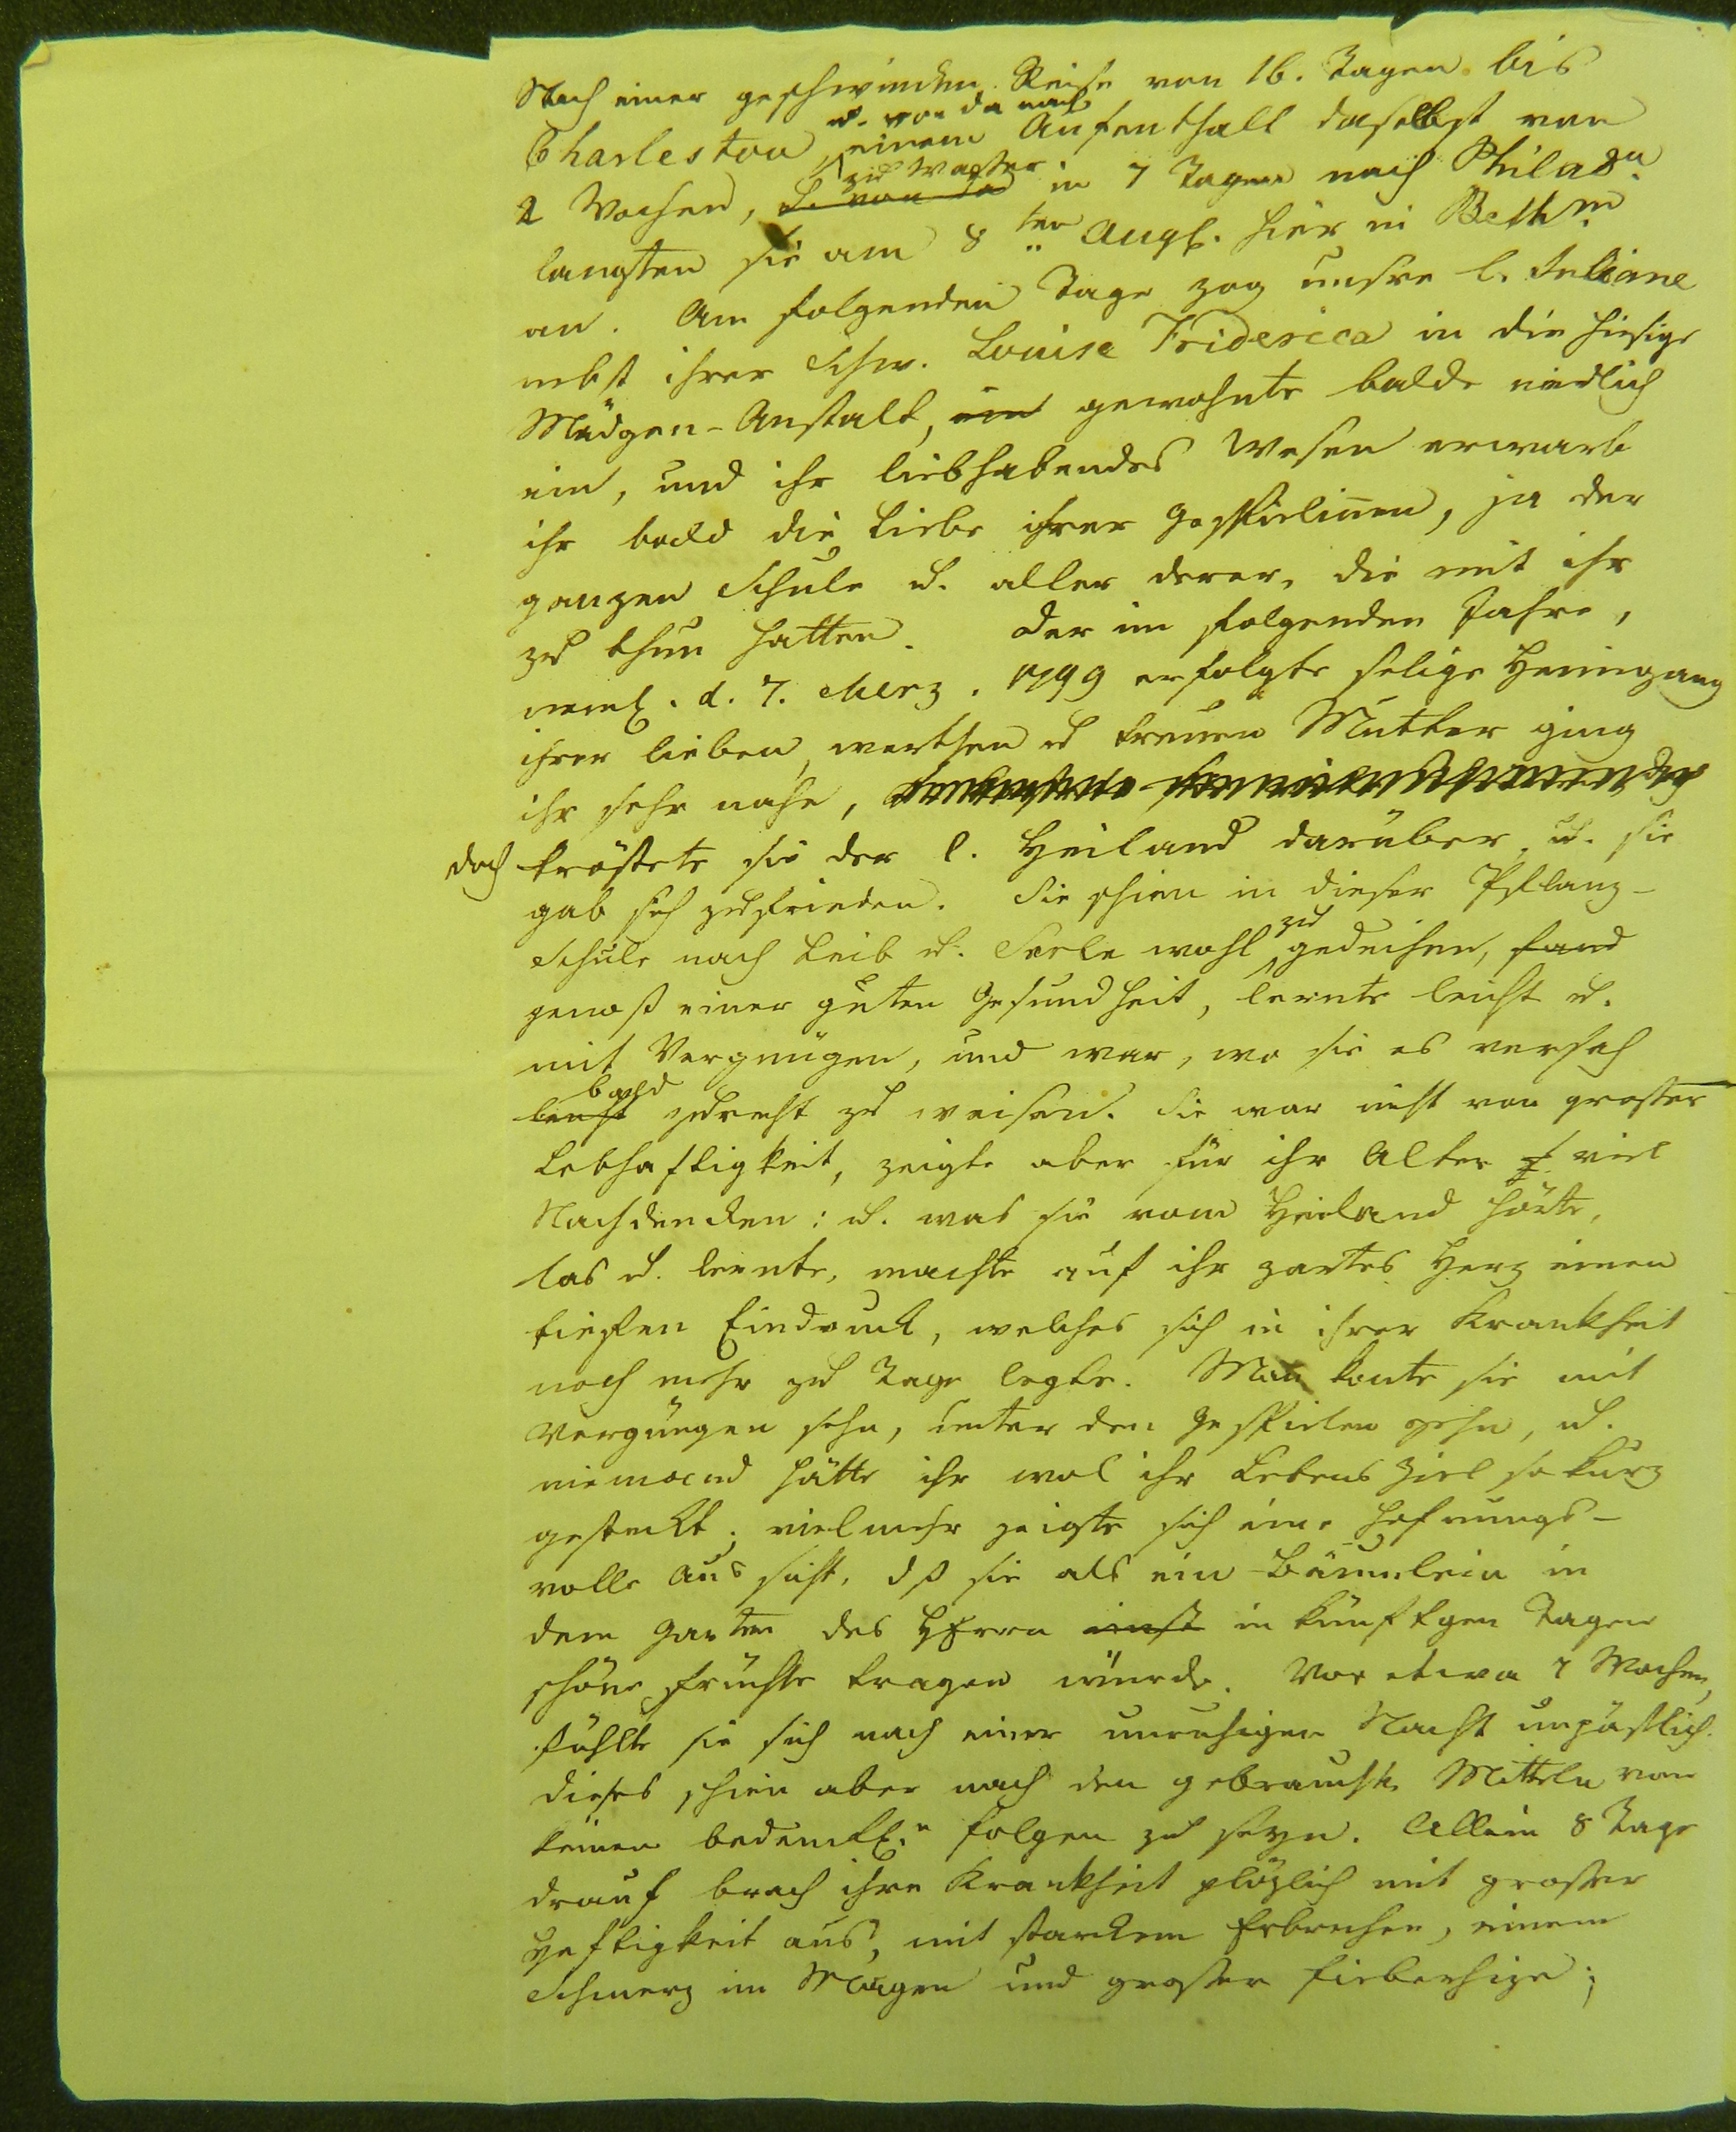 Nach einer geschwinden Reise von 16. Tagen bis
u. von da nach
Charleston, einem Aufenthalt daselbst von
zu Wasser
2 Wochen, u. von da in 7 Tagen nach Philada.
langten sie am 8ten Augs. hier in Bethm.
an. Am folgenden Tage zog unsre l. Juliane
nebst ihrer Schw. Louise Friderica in die hiesige
Mädgen-Anstalt, ein gewohnte balde niedlich
ein, und ihr liebhabendes Wesen erwarb
ihr bald die Liebe ihrer Gespielinnen, ja der
ganzen Schule u. aller derer, die mit ihr
zu thun hatten. Der im folgenden Jahre,
neml. d. 7. Merz. 1799 erfolgte selige Heimgang
ihrer lieben, werthen u treuen Mutter ging
ihr sehr nahe,
doch tröstete sie der l. Heiland darüber, u. sie
gab sich zufrieden. Sie schien in dieser Pflanz-
zu
Schule nach Leib u. Seele wohl gedeihen, fand
genoß einer guten Gesundheit, lernte leicht u.
mit Vergnügen, und war, wo sie es versah
bald
leicht zurecht zu weisen. Sie war nicht von grosser
Lebhaftigkeit, zeigte aber für ihr Alter viel
Nachdencken: u. was sie vom Heiland hörte,
las u. lernte, machte auf ihr zartes Herz einen
tieffen Eindruck, welches sich in ihrer Krankheit
noch mehr zu Tage legte. Man konte sie mit
Vergnügen sehn, unter den Gespielen gehn, u.
niemand hätte ihr wol ihr Lebens Ziel so kurz
gesteckt; vielmehr zeigte sich eine Hofnungs-
volle Aussicht, dß sie als ein Bäumlein in
dem Garten des HErrn einst in künftgen Tagen
schöne Früchte tragen würde. Vor etwa 7 Wochen,
fühlte sie sich nach einer unruhigen Nacht unpäßlich.
dieses schien aber nach den gebrauchten Mitteln von
keinen bedenckl.n Folgen zu seyn. Allein 8 Tage
drauf brach ihre Krankheit plözlich mit grosser
Heftigkeit aus, mit starckem Erbrechen, einem
Schmerz im Magen und grosser Fieberhize;